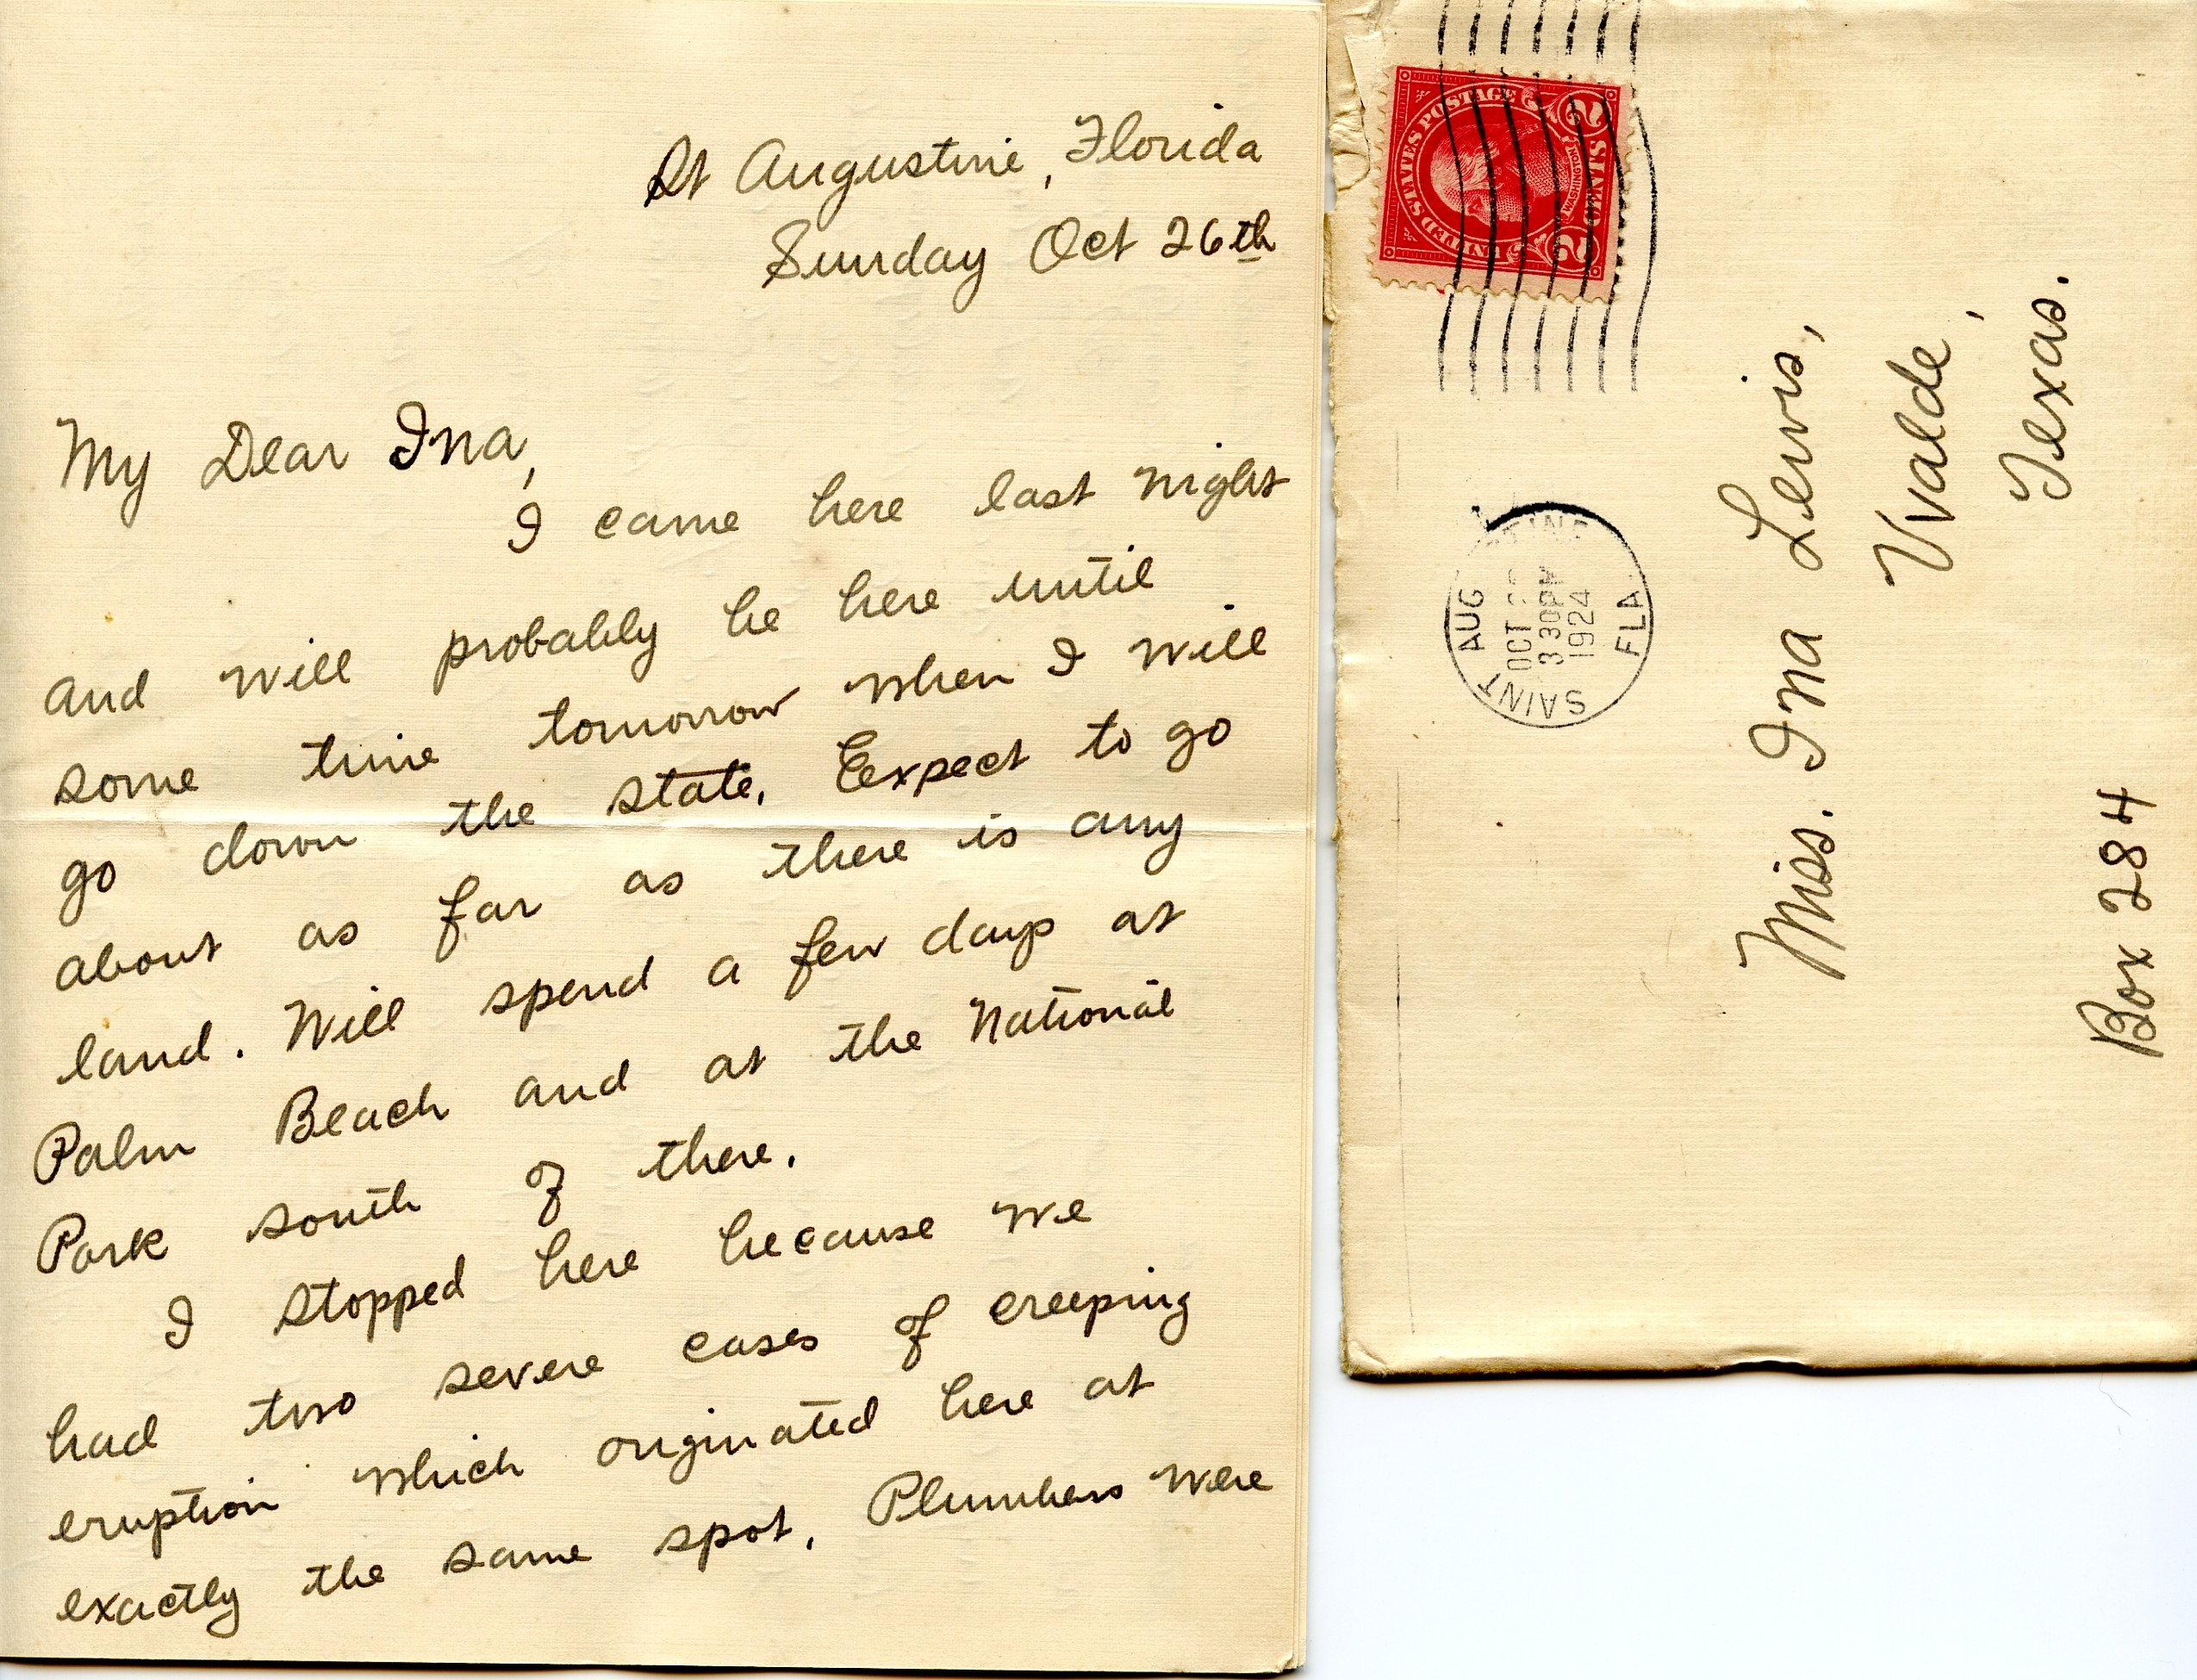 St Augustine, Florida
Sunday Oct 26th
My Dear Ina,
I came here last night
and will probably be here until
some time tomorrow when I will
go down the state. Expect to go
about as far as there is any
land. Will spend a few days at
Palm Beach and at the National
Park south of there.
I stopped here because we
had two severe cases of creeping
eruption which originated here at
exactly the same spot. Plumbers were
UNITED STATES POSTAGE
WASHINGTON
2 CENTS 2
SAINT AUG
OCT
3 30PM
1924
FLA.
Miss. Ina Lewis,
Uvalde,
Texas.
Box 284